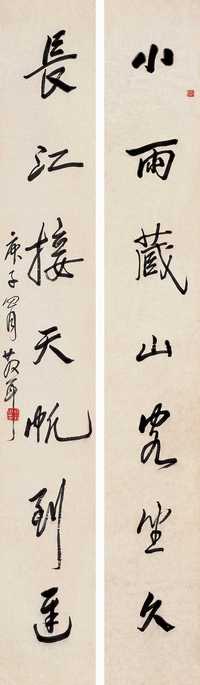 小雨藏山客坐久
長江接天帆到遲
庚子四月散耳